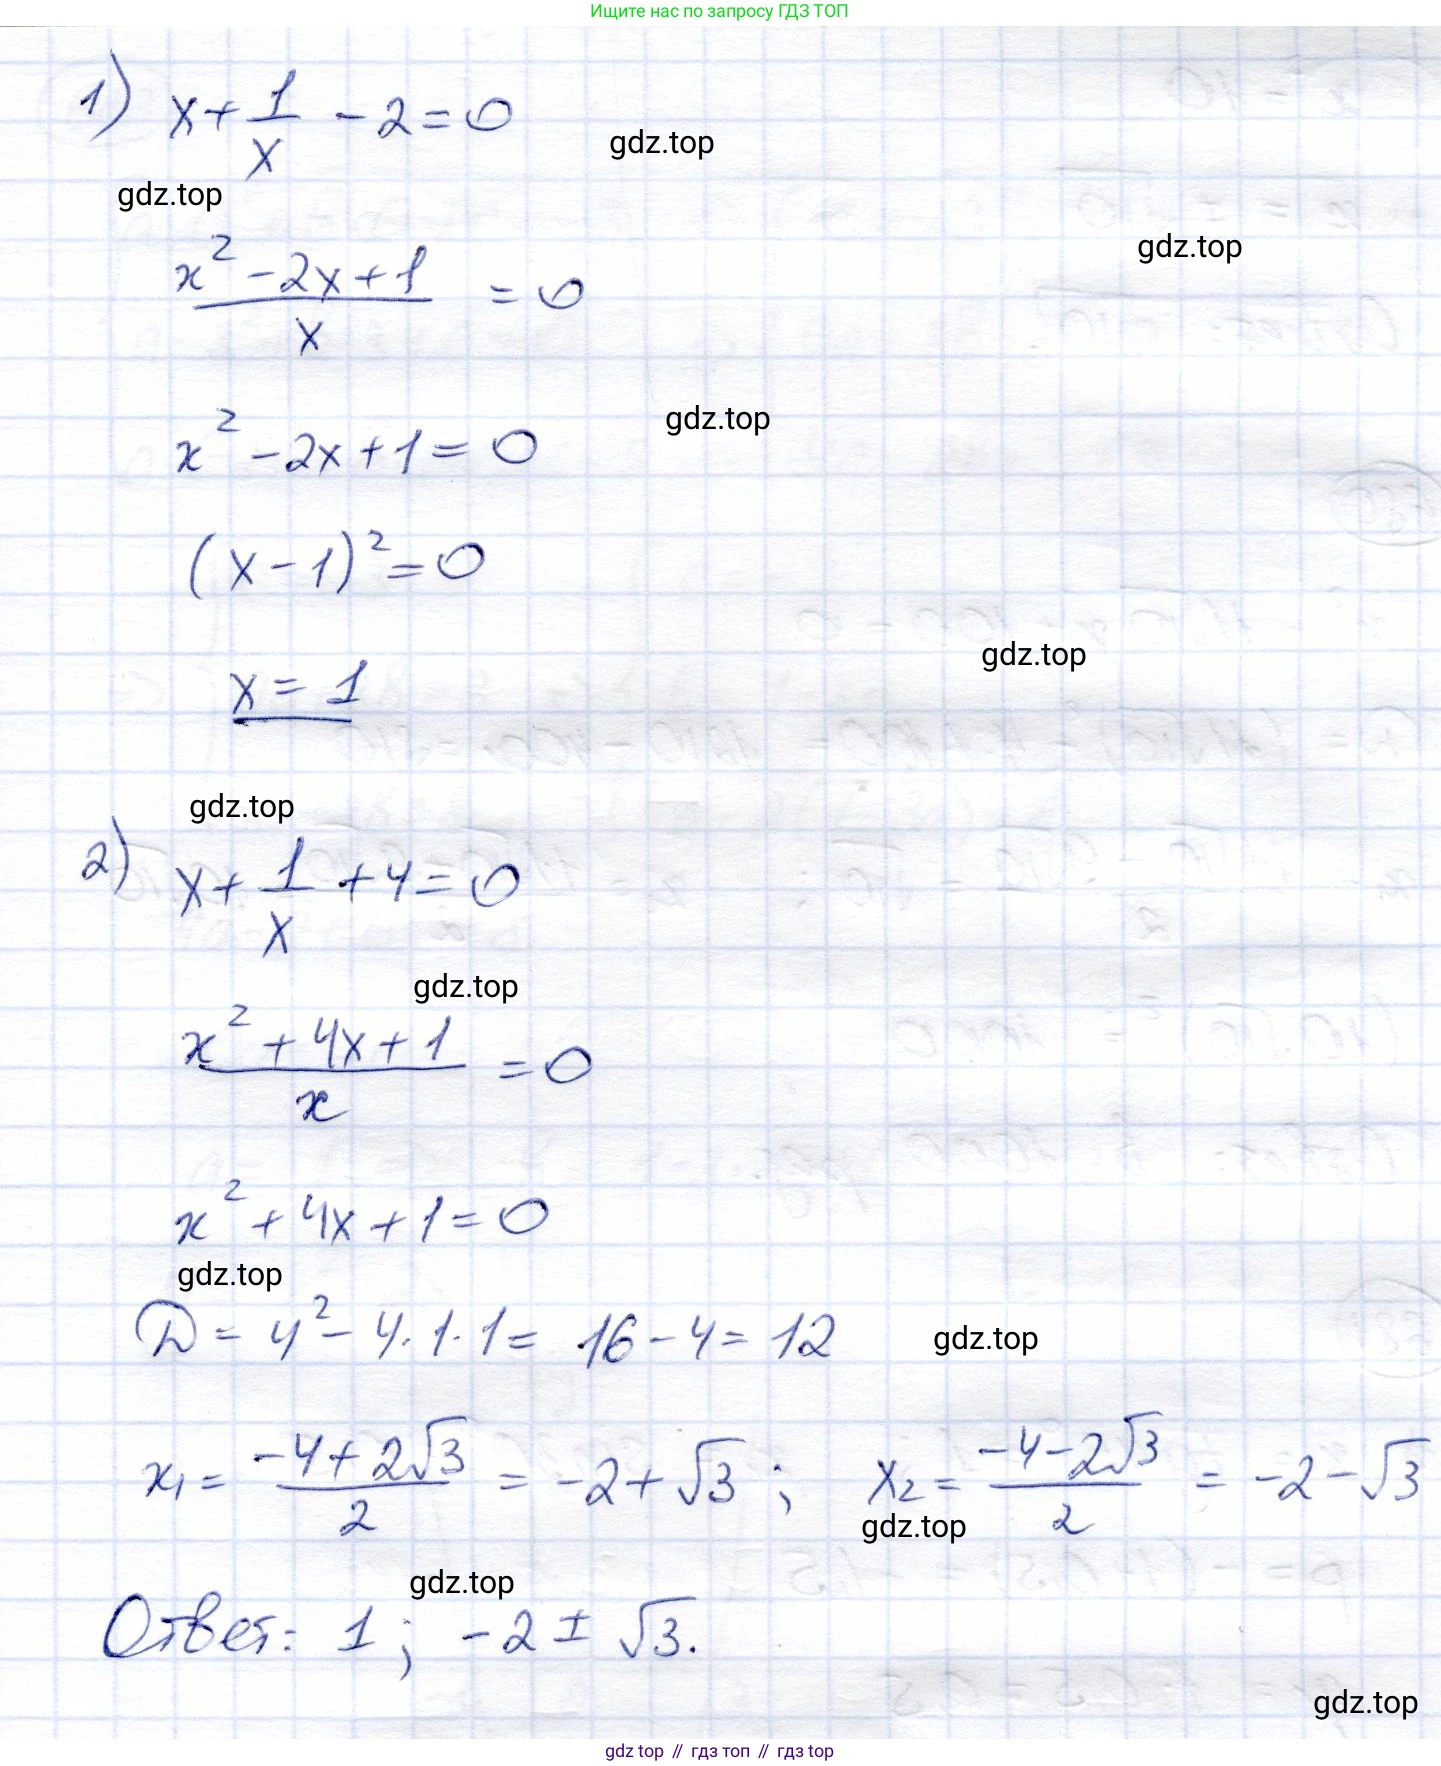 Ищите нас по запросу ГДЗ ТОП
1) x + 1/x - 2 = 0
gdz.top
gdz.top
gdz.top
(x² - 2x + 1)/x = 0
gdz.top
x² - 2x + 1 = 0
(x - 1)² = 0
gdz.top
x = 1
gdz.top
2) x + 1/x + 4 = 0
gdz.top
(x² + 4x + 1)/x = 0
x² + 4x + 1 = 0
gdz.top
D = 4² - 4·1·1 = 16 - 4 = 12
gdz.top
x₁ = (-4 + 2√3)/2 = -2 + √3 ; x₂ = (-4 - 2√3)/2 = -2 - √3
gdz.top
gdz.top
Ответ: 1 ; -2 ± √3.
gdz.top
gdz top // гдз топ // гдз top